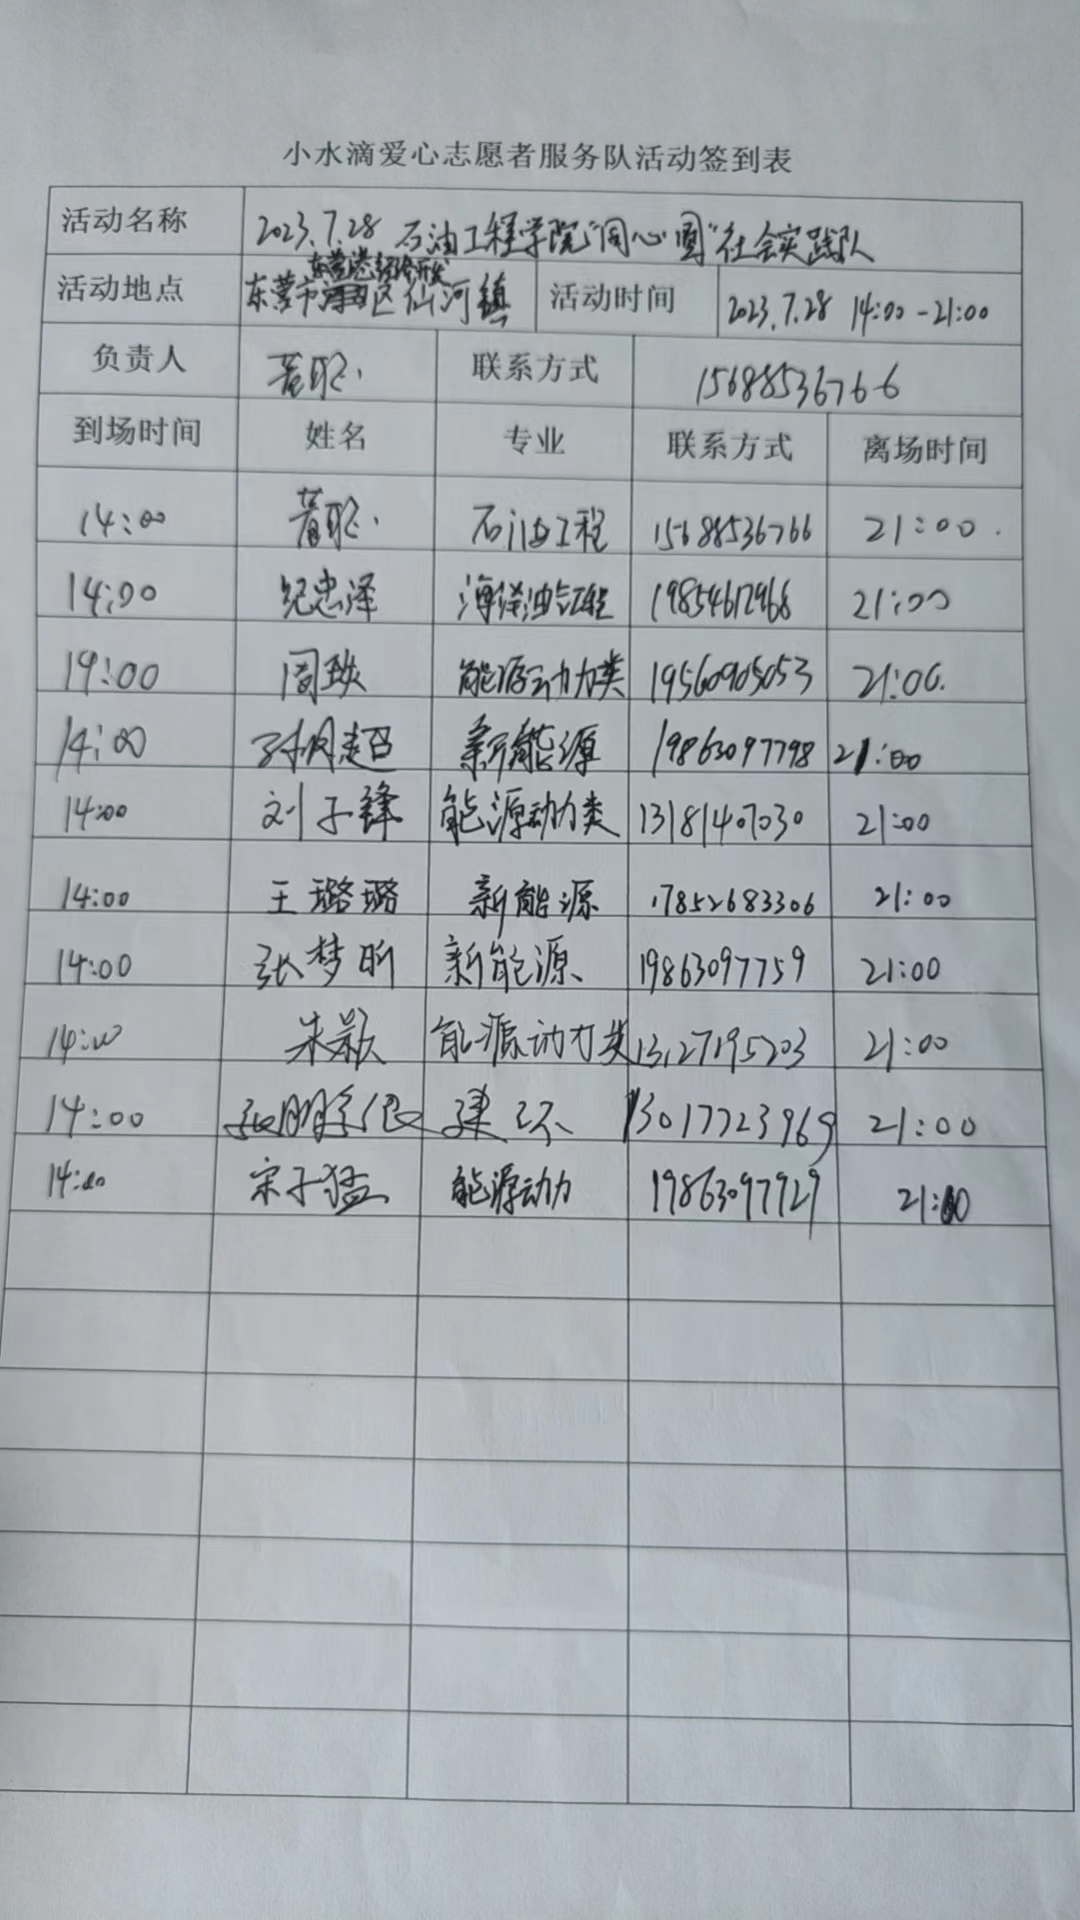 小水滴爱心志愿者服务队活动签到表
活动名称 2023.7.28 石油工程学院"同心圆"社会实践队
活动地点 东营市东营港经济开发区仙河镇 活动时间 2023.7.28 14:00-21:00
负责人 黄聪 联系方式 15688536766
到场时间 姓名 专业 联系方式 离场时间
14:00 黄聪 石油工程 15688536766 21:00
14:00 纪忠泽 海洋油气工程 19854612968 21:00
19:00 周轶 能源动力类 19560905053 21:00
14:00 孙月超 新能源 19863097798 21:00
14:00 刘子锋 能源动力类 13181407030 21:00
14:00 王璐璐 新能源 17852683306 21:00
14:00 张梦昕 新能源 19863097759 21:00
14:00 朱颖 能源动力类 13127195203 21:00
14:00 建环 13017723969 21:00
14:00 宋子猛 能源动力 19863097929 21:00